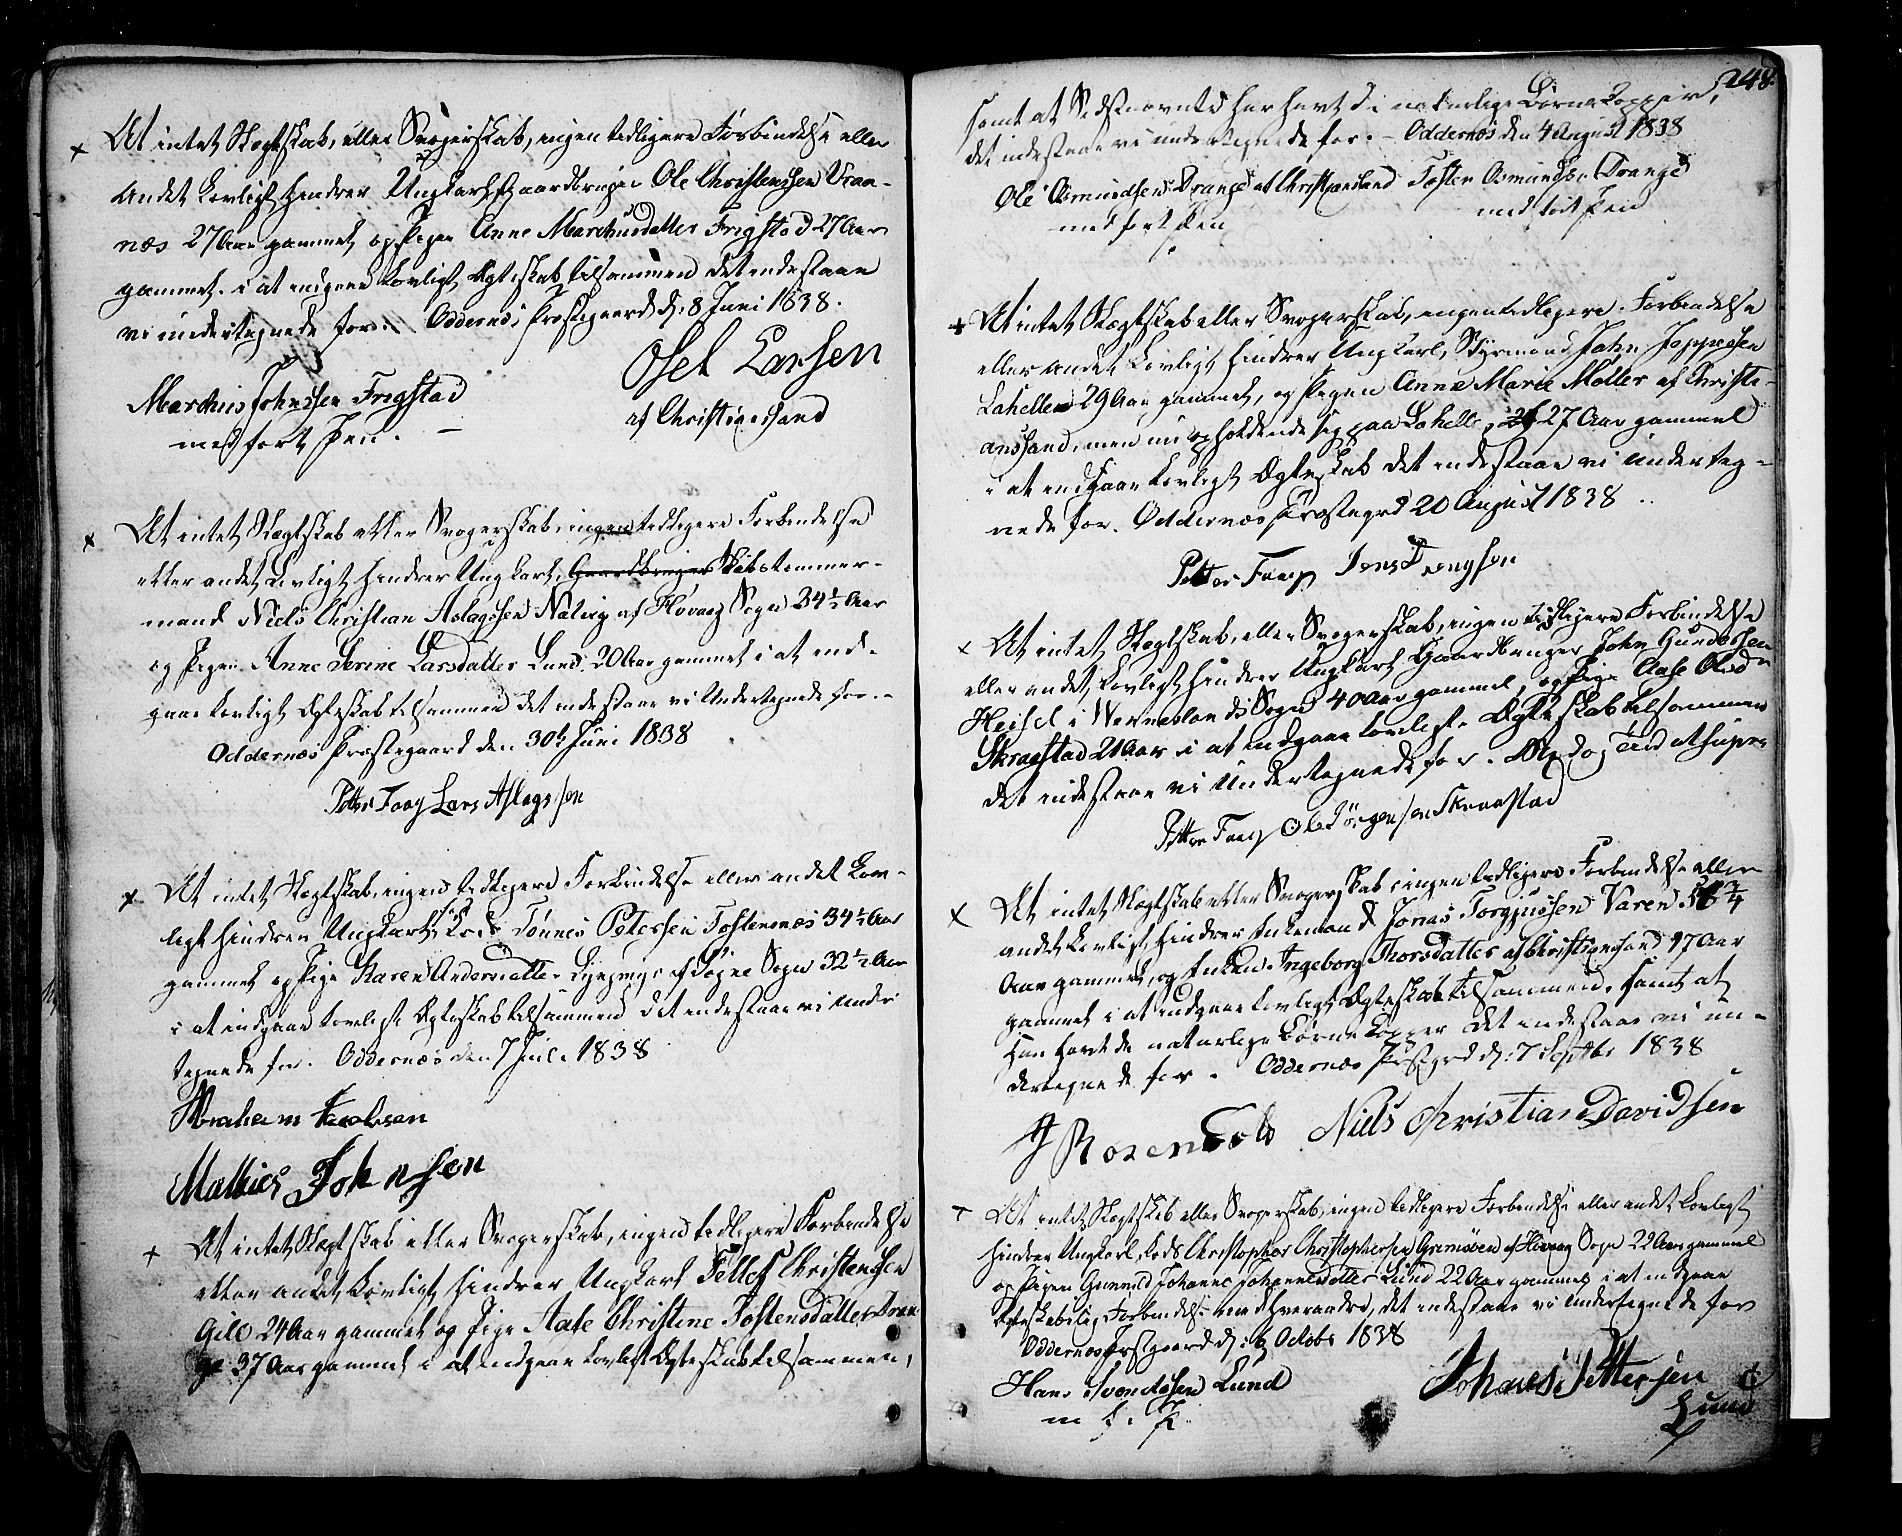 At intet Slægtskab, eller Svogerskab, ingen tidligere Forbindelse eller
andet Lovligt hindrer Ungkarl Gaardbruger Ole Christensen Vraa-
næs 27 Aar gammel, og Pigen Anne Marchusdatter Frigstad 27 Aar
gammel i at indgaae Lovligt Ægteskab tilsammen det indestaae
vi undertegnede for. Oddernæs Præstegaard d: 8 Juni 1838.
Marchus Johnssen Frigstad
med ført Pen.
Osel Larsen
af Christiansand
At intet Slægtskab eller Svogerskab, ingen tidligere Forbindelse
eller andet Lovligt hindrer Ungkarl, Gaardbruger Skibstømmer-
mand Niels Christian Aslagssen Natvig af Høvaag Sogn 34½ Aar
og Pigen Anne Serine Larsdatter Lund 20 Aar gammel i at ind-
gaae lovligt Ægteskab tilsammen det indestaae vi Undertegnede for.
Oddernæs Præstegaard den 30te Juni 1838
Petter Faay Lars Aslags søn
At intet Slægtskab, ingen tidligere Forbindelse eller andet Lov-
ligt hindrer Ungkarl, Tønnes Petersen Tostensnæs 34½ Aar
gammel og Pige Karen Andersdatter af Søgne Sogn 32½ Aar
i at indgaae lovligt Ægteskab tilsammen det indestaae vi under
tegnede for. Oddernæs den 7 Juli 1838
Abraham Jacobsen
Mathies Johnsen
At intet Slægtskab eller Svogerskab, ingen tidligere Forbindelse
eller andet Lovligt hindrer Ungkarl Tellef Christensen
Gill 24 Aar gammel og Pige Aase Christine Tostensdatter Dran
ge 37 Aar gammel i at indgaae lovligt Ægteskab tilsammen,
248.
samt at Sidstnævnte har havt de naturlige Børnekopper,
det indestaae vi undertegnede for. – Oddernæs den 4 August 1838
Ole Osmundsen Drange af Christiansand Tosten Osmundsen Drange
med ført Pen
med ført Pen
At intet Slægtskab eller Svogerskab, ingen tidligere Forbindelse
eller andet Lovligt hindrer Ungkarl, Styrmand John Jeppesen
Lahelle 29 Aar gammel, og Pigen Anne Marie Møller af Christi-
anssand, men nu opholdende sig paa Lahelle, 27 Aar gammel
i at indgaae lovligt Ægteskab det indestaae vi underteg-
nede for. Oddernæs Præstegrd 20 August 1838
Petter Faay Jens
At intet Slægtskab, eller Svogerskab, ingen tidligere Forbindelse
eller andet Lovligt hindrer Ungkarl Gaardbruger John Gundersen
Heisel i Vennesland Sogn 40 Aar gammel, og Pige Aase Olsd
Skraastad 21 Aar i at indgaae lovligt Ægteskab tilsammen
det indestaae vi Undertegnede for. Sted og Tid ut supra
Petter Faay Ole Jørgensen Skraastad
At intet Slægtskab eller Svogerskab, ingen tidligere Forbindelse eller
andet Lovligt hindrer Enkemand Jonas Torgjussen Varen
Aar gammel, og Enken Ingeborg Thorsdatter af Christiansand 47 Aar
gammel i at indgaae lovligt Ægteskab tilsammen, samt at
han havt de naturlige Børne Kopper det indestaae vi un-
dertegnede for. Oddernæs Præstegrd d: 7 Septbr 1838
Niels Christian Davidsen
At intet Slægtskab eller Svogerskab, ingen tidligere Forbindelse eller andet Lovligt
hindrer Ungkarl, Christopher Christophersen Grønsøen af Høvaag Sogn 22 Aar gammel
og Pigen Gunnild Johanne Johannesdatter Lund 22 Aar gammel i at indgaae
Ægteskabelig Forbindelse med hverandre, det indestaae vi undertegnede for
Oddernæs Præstgaard d: 6 Octobr 1838
Hans Svendssen Lund
m f. P.
Johanes Pettersen
Lund